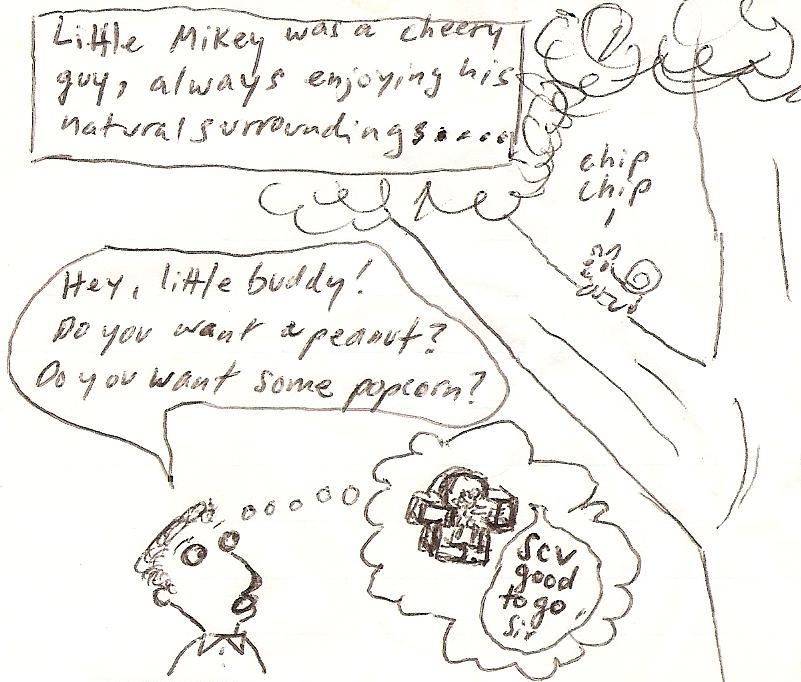 Little Mikey was a cheery
guy, always enjoying his
natural surroundings.....
chip
chip
Hey, little buddy!
Do you want a peanut?
Do you want some popcorn?
SCV
good
to go
sir